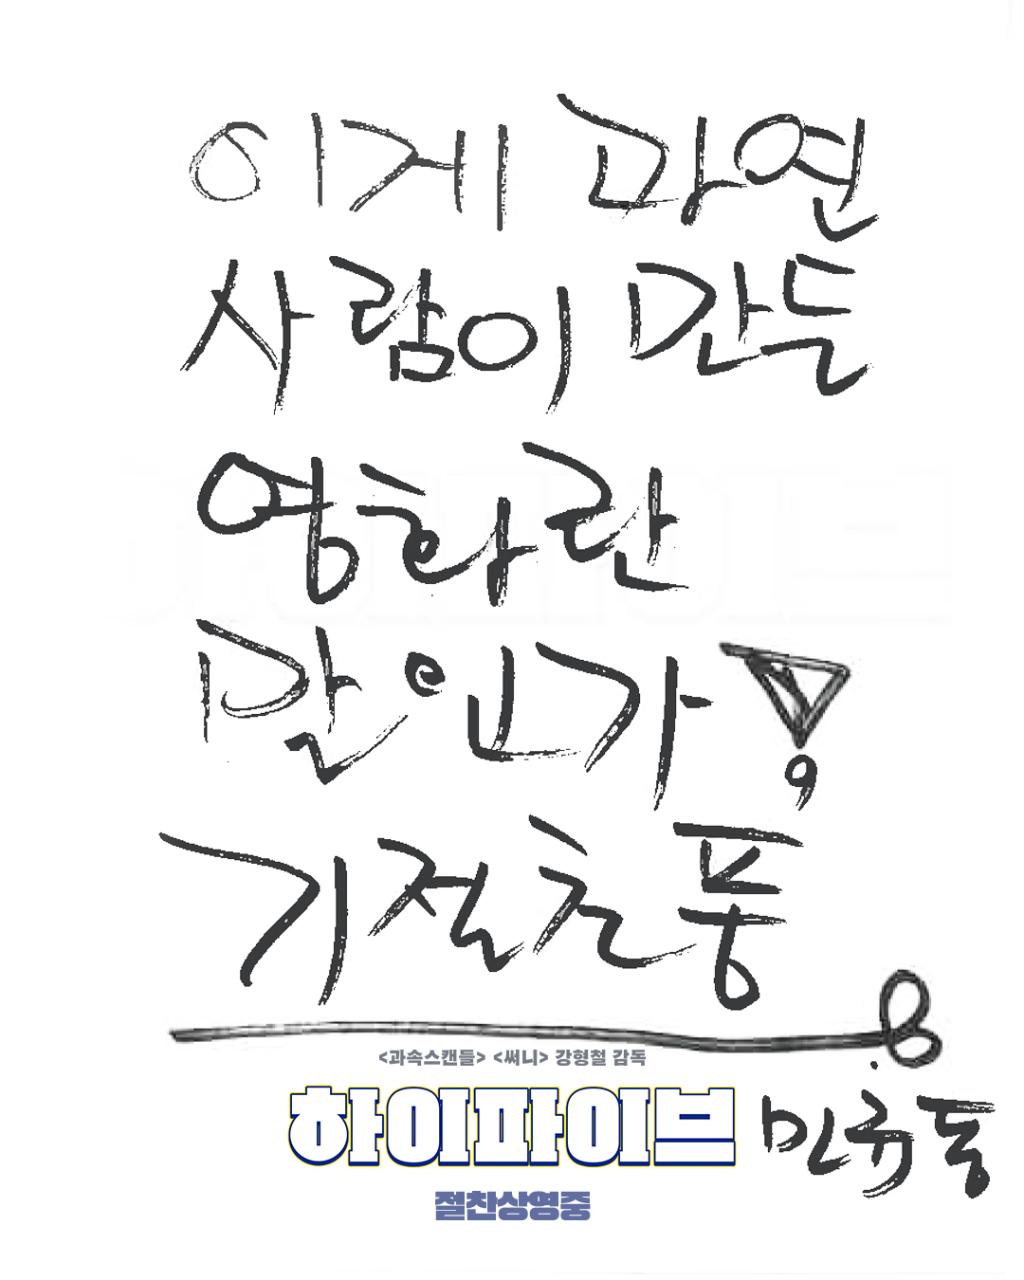 이게 과연
사람이 만든
영화란
말인가!
기절초풍
<과속스캔들> <써니> 강형철 감독
하이파이브
민규동
절찬상영중